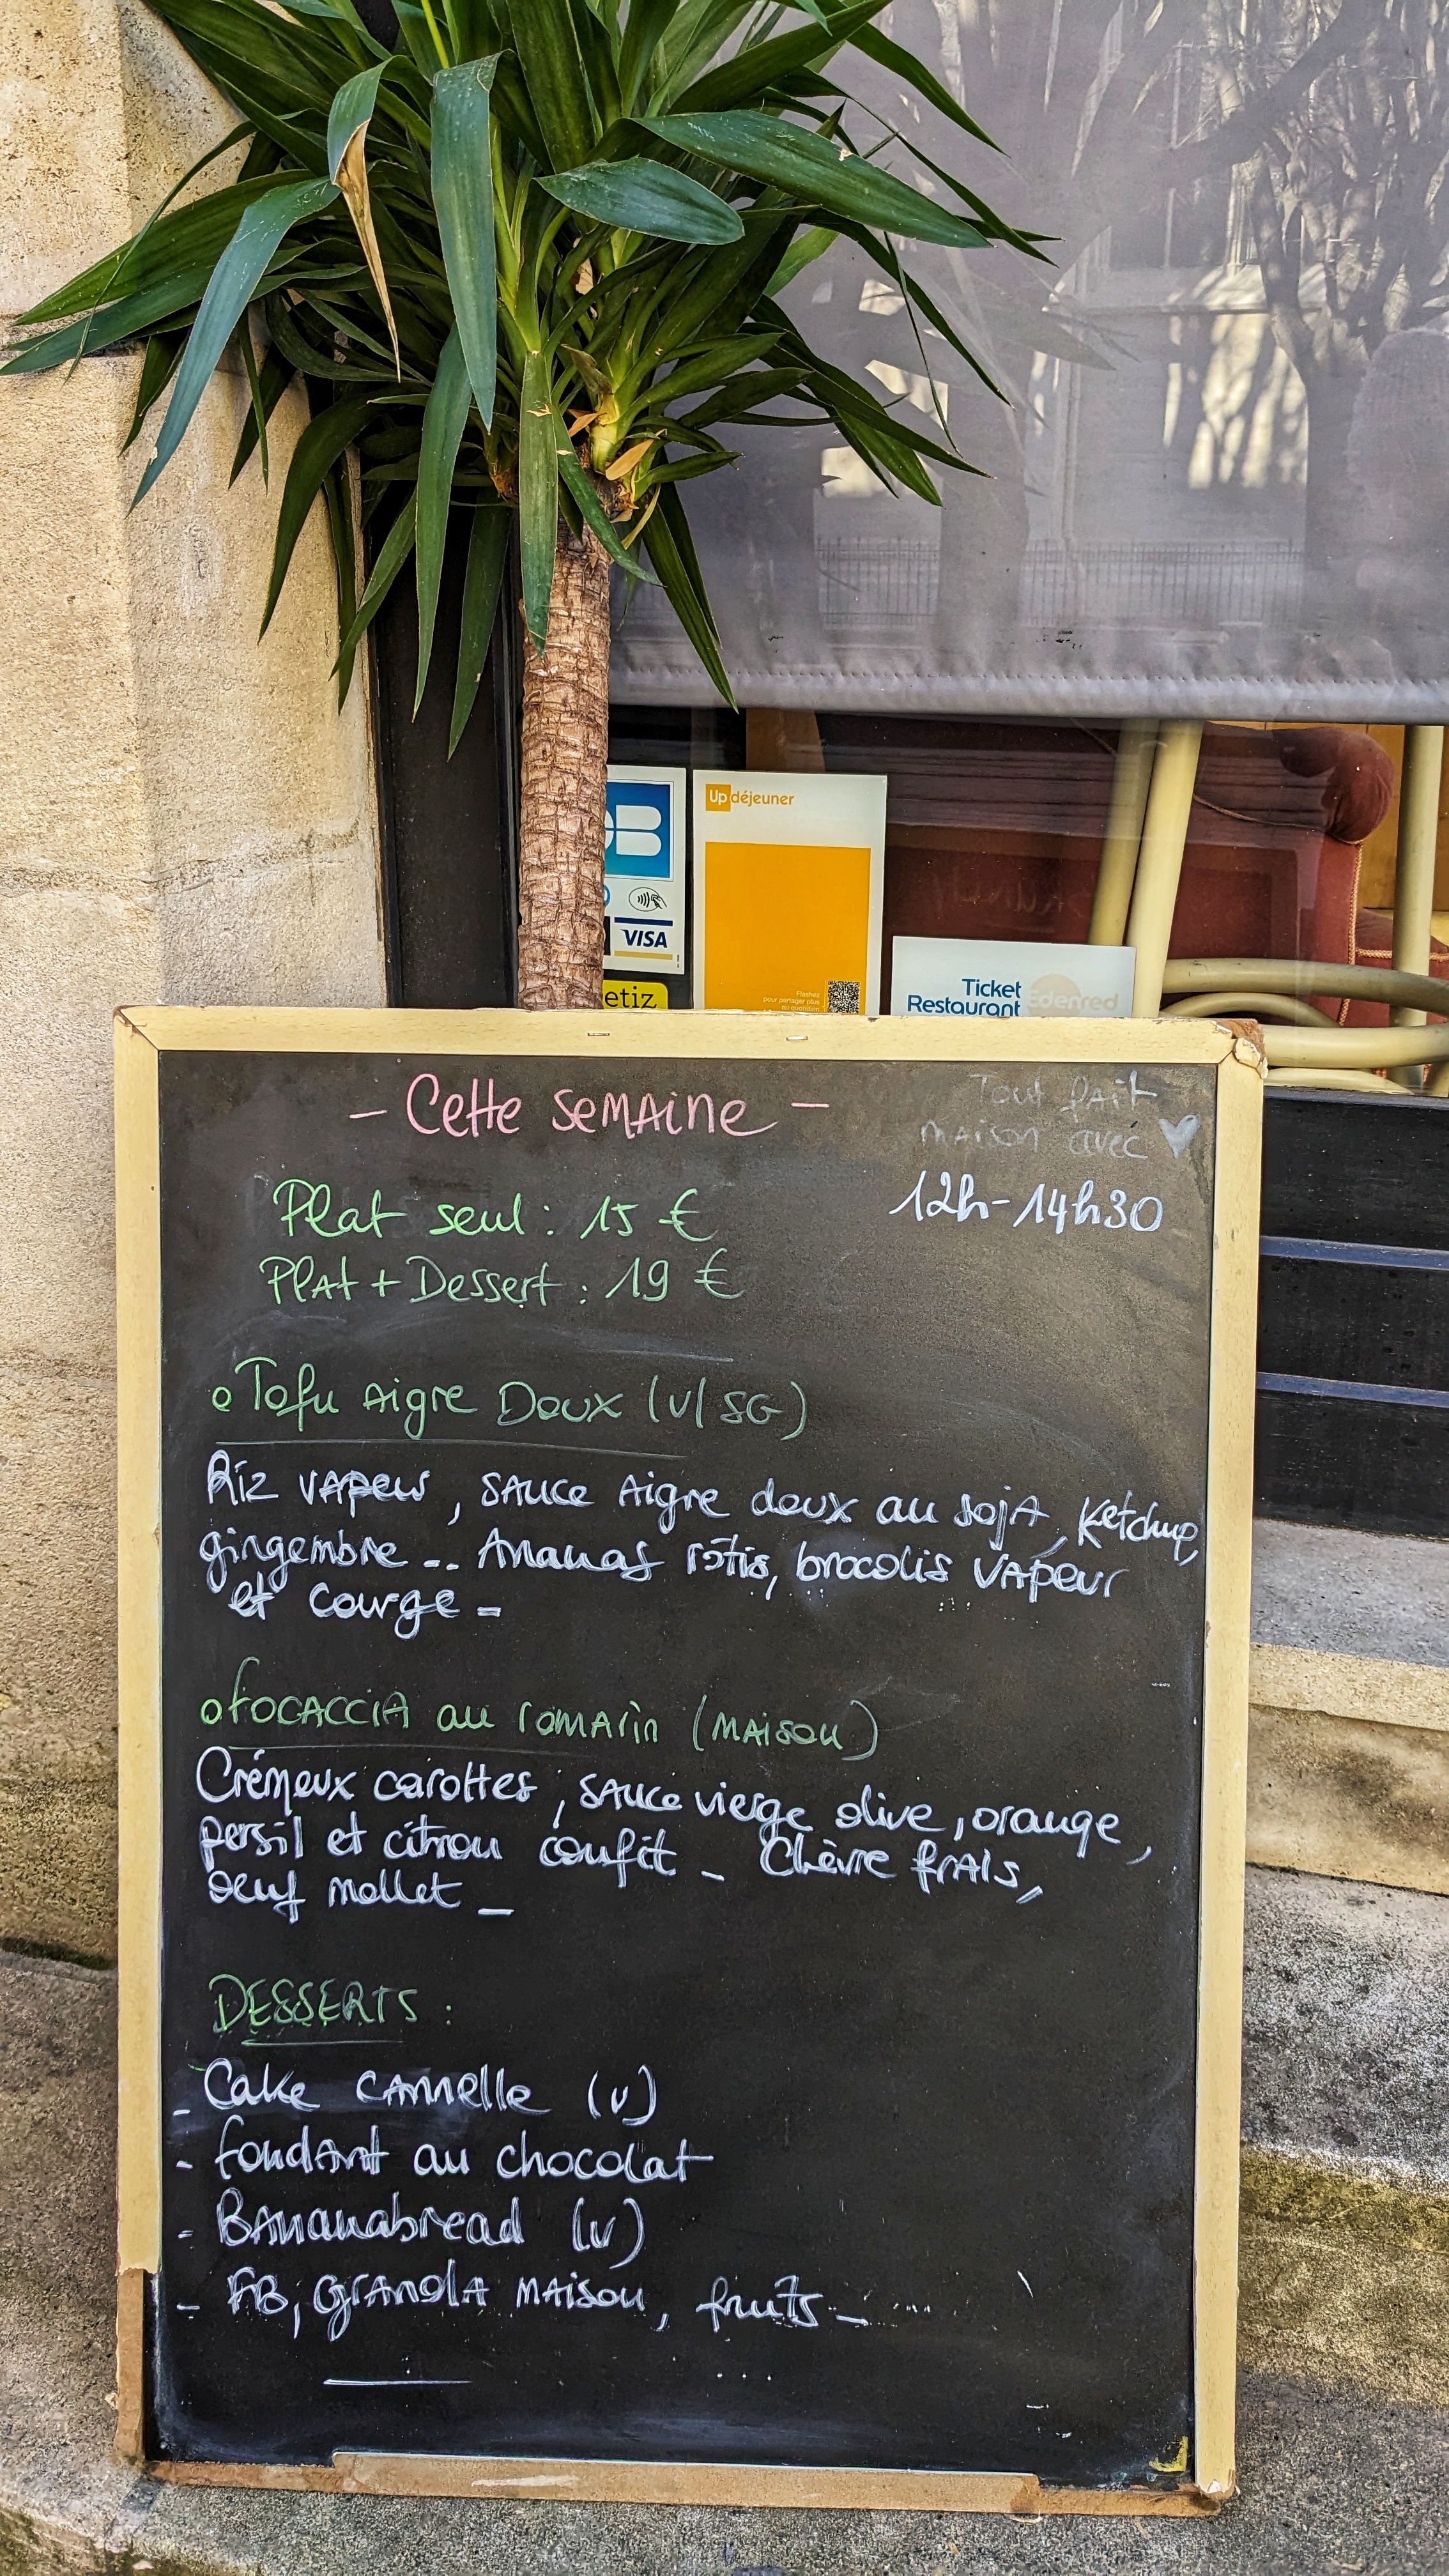 B
VISA
etiz.
Up déjeuner
Flashez
pour partager plus
au quotidien
Ticket
Restaurant Edenred
- Cette semaine -
Tout fait
maison avec ♥
12h-14h30
Plat seul : 15 €
Plat + Dessert : 19 €
o Tofu Aigre Doux (V/SG)
Riz vapeur, sauce Aigre doux au soja, Ketchup,
gingembre -- Ananas rôtis, brocolis vapeur
et courge -
o Focaccia au romarin (maison)
Crémeux carottes, sauce vierge olive, orange,
persil et citron confit - Chèvre frais,
oeuf mollet -
DESSERTS :
- Cake cannelle (v)
- fondant au chocolat
- Bananabread (v)
- FB, granola maison, fruits -